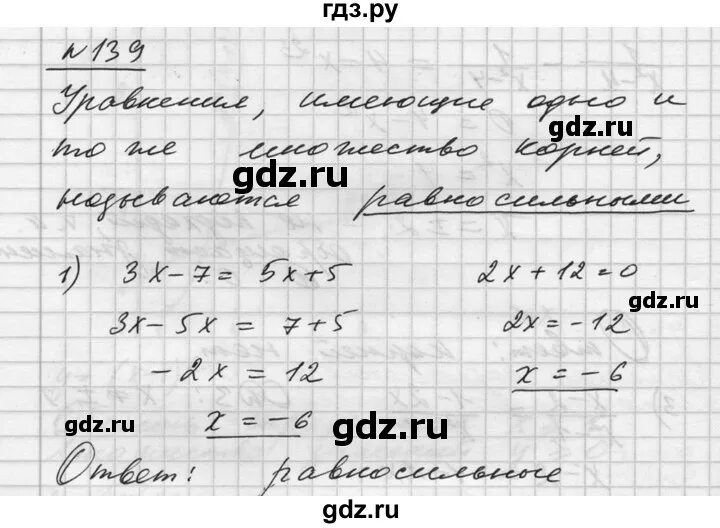 гдз.ру
N 139
Уравнения, имеющие одно и
gdz.ru
то же множество корней,
gdz.ru
называются равносильными
1) 3x-7 = 5x+5 2x+12=0
gdz.ru
3x-5x = 7+5 2x=-12
-2x = 12 x = -6
x = -6
gdz.ru gdz.ru
Ответ: равносильные
gdz.ru